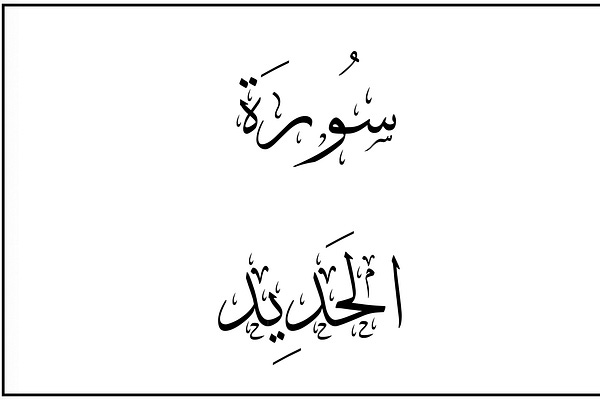 سُورَة
الحَدِيد